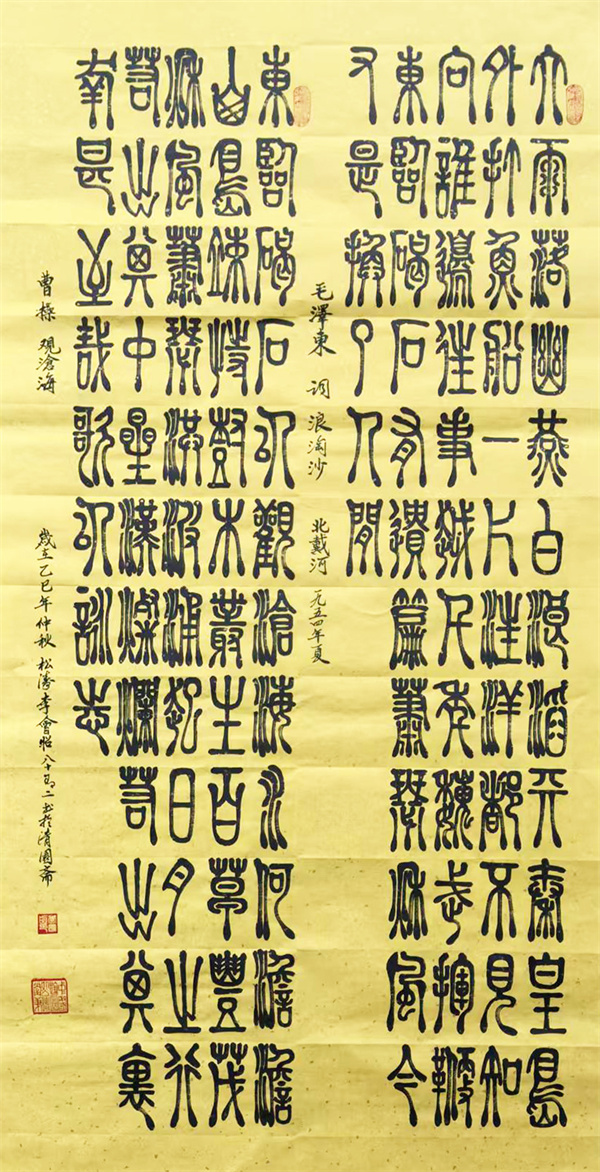 大雨落幽燕白浪滔天秦皇島
外打魚船一片汪洋都不見知
向誰邊往事越千年魏武揮鞭
東臨碣石有遺篇蕭瑟秋風今
又是換了人間
毛澤東 詞 浪淘沙 北戴河 一九五四年夏
東臨碣石以觀滄海水何澹澹
山島竦峙樹木叢生百草豐茂
秋風蕭瑟洪波涌起日月之行
若出其中星漢燦爛若出其裏
幸甚至哉歌以詠志
曹操 观滄海 歲在乙巳年仲秋 松濤李會昭八十有二书於清園斋